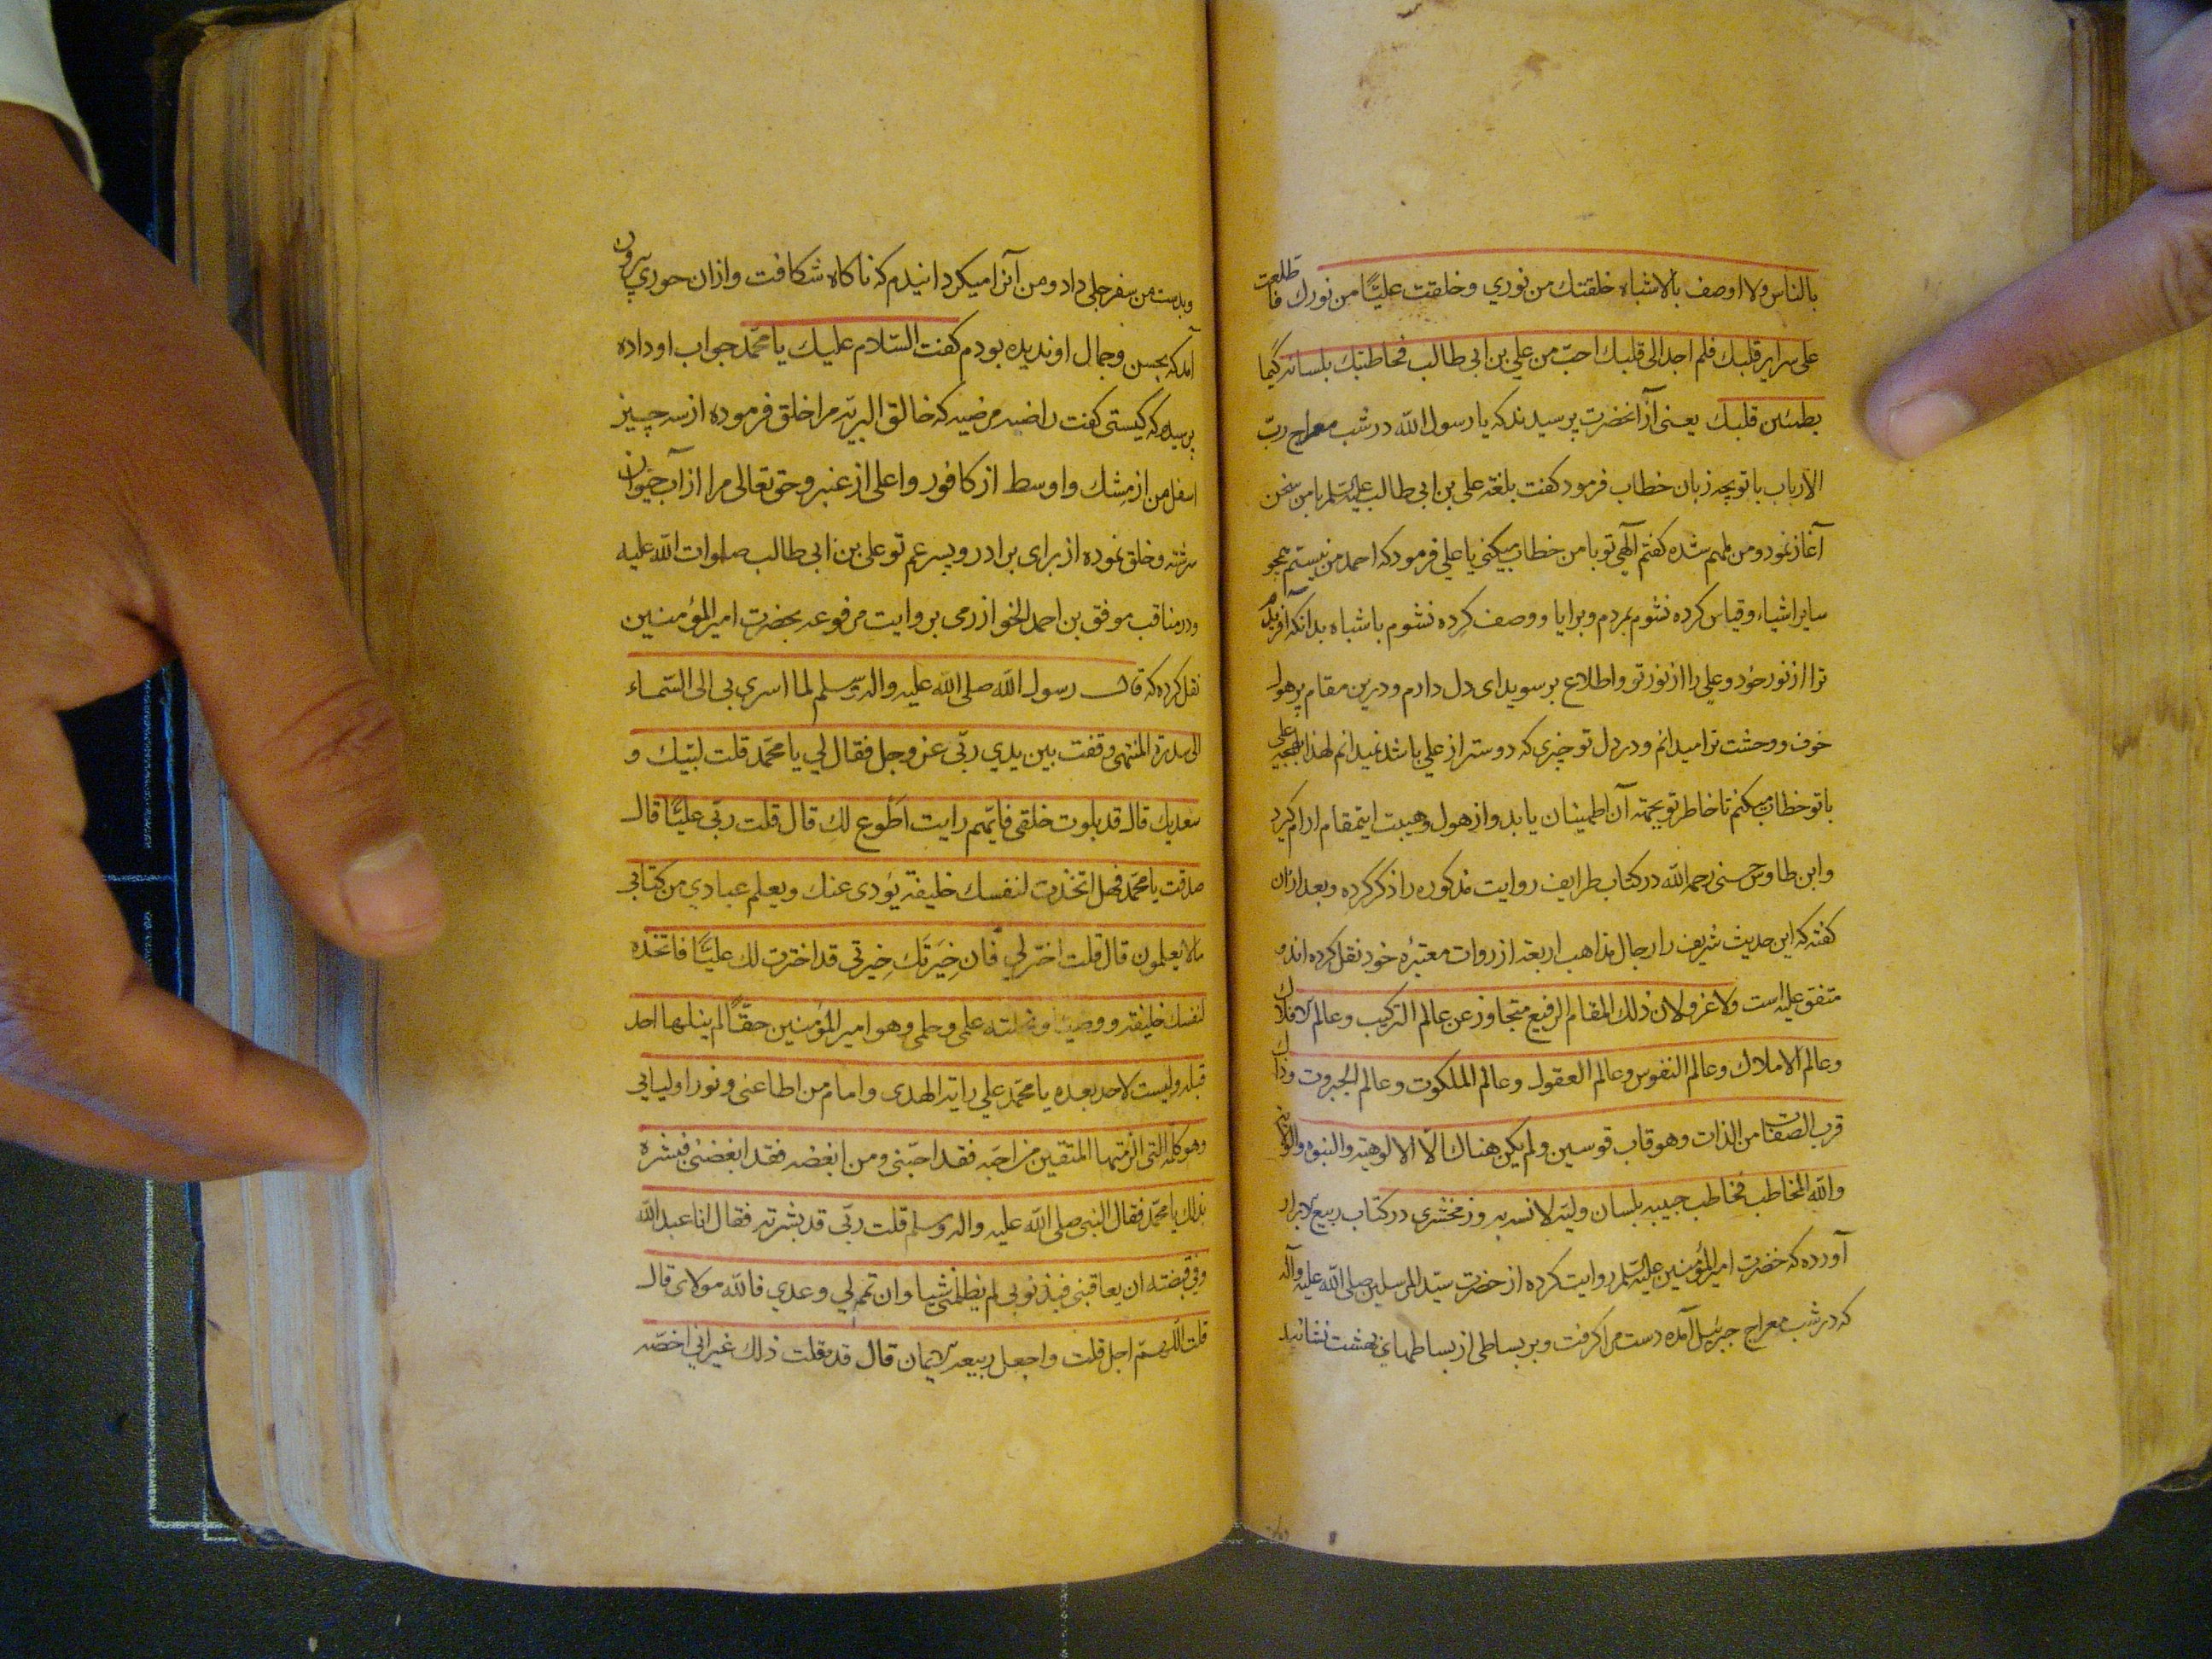 بالناس ولا اوصف بالاشباه خلقتك من نوري وخلقت عليًّا من نورك فاطلعت
على سراير قلبك فلم اجد الى قلبك احب من علي بن ابي طالب فخاطبتك بلسانه كيما
يطمئن قلبك يعنى از آنحضرت پرسيدند كه يا رسول الله در شب معراج ربّ
الارباب با تو بچه زبان خطاب فرمود كفت بلغة على بن ابى طالب عليه السلم با من سخن
آغاز نمود و من ملهم شده كفتم الهى تو با من خطاب ميكنى يا علي فرمود كه احمد من نيستم همچو
ساير اشياء و قياس كرده نشوم بمردم و برايا و وصف كرده نشوم باشباه بدانكه آفريدم
ترا از نور خود و علي را از نور تو و اطلاع بر سويداى دل دارم و درين مقام پر هول
خوف و وحشت ترا ميدانم و در دل تو چيزى كه دوستر از علي باشد نميدانم لهذا بلهجه على
با تو خطاب ميكنم تا خاطر تو بجهة آن اطمينان يابد و از هول و هيبت اينمقام ارام كيرد
و ابن طاوس حسنى رحمه الله در كتاب طرايف روايت مذكوره را ذكر كرده و بعد ازان
كفته كه اين حديث شريف را رجال مذاهب اربعه از روات معتبره خود نقل كرده اند و
متفق عليه است ولا غرو لان ذلك المقام الرفيع متجاوز عن عالم التركيب وعالم الافلاك
وعالم الاملاك وعالم النفوس وعالم العقول وعالم الملكوت وعالم الجبروت وذاك
قرب الصفات من الذات وهو قاب قوسين ولم يكن هناك الّا الالوهية والنبوة والولاية
والله المخاطب فخاطب حبيبه بلسان وليّه لانسه به و زمخشرى در كتاب ربيع الابرار
آورده كه حضرت امير المؤمنين عليه السلم روايت كرده از حضرت سيّد المرسلين صلى الله عليه وآله
كه در شب معراج جبرئيل آمده دست مرا كرفت و بر بساطى از بساطهاى بهشت نشانيد
و بدست من سفرجلى داد و من آنرا ميكردانيدم كه ناكاه شكافت و ازان حورى بيرون
آمد كه بحسن و جمال او نديده بودم كفت السّلام عليك يا محمّد جواب او داده
پرسيدم كه كيستى كفت راضيه مرضيه كه خالق البريّه مرا خلق فرموده از سه چيز
اسفل من از مِشك و اوسط از كافور و اعلى از عنبر و حق تعالى مرا از آب حيوان
سرشته و خلق نموده از براى برادر و پسر عم تو على بن ابى طالب صلوات الله عليه
و در مناقب موفق بن احمد الخوازرمى بروايت مرفوعه بحضرت امير المؤمنين
نقل كرده كه قال رسول الله صلى الله عليه واله وسلم لما اسرى بى الى السّماء
الى سدرة المنتهى وقفت بين يدي ربّى عز وجل فقال لي يا محمّد قلت لبّيك و
سعديك قال قد بلوت خلقى فايّهم رايت اَطْوع لك قال قلت ربّى عليًّا قال
صدقت يا محمّد فهل اتخذت لنفسك خليفة يؤدى عنك ويعلم عبادي من كتابى
مالا يعلمون قال قلت اختر لي فان خِيَرتَك خِيرتى قد اخترت لك عليًّا فاتخذه
لنفسك خليفة ووصيا ونحلته علمى وحلمى وهو امير المؤمنين حقًّا لم ينلها احد
قبله وليست لاحد بعده يا محمّد علي راية الهدى وامام من اطاعنى ونور اوليايى
وهو كلمة التى الزمتها المتقين من احبّه فقد احبّنى ومن ابغضه فقد ابغضنى فبشره
بذلك يا محمّد فقال النبى صلى الله عليه واله وسلم قلت ربّى قد بشرته فقال انا عبد الله
وفي قبضته ان يعاقبنى فبذنوبى لم يظلمنى شيا وان تمم لي وعدي فالله مولاى قال
قلت اللّهمّ اجل قلت واجعل ربيعه الايمان قال قد فعلت ذلك غير انى اخصّه